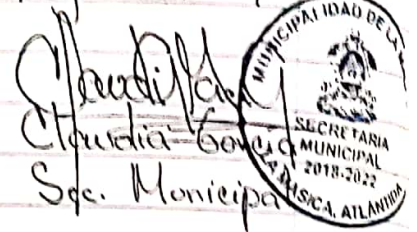 Claudia García
Sec. Municipal
MUNICIPALIDAD DE LA
SECRETARIA
MUNICIPAL
2018-2022
LA MASICA, ATLANTIDA